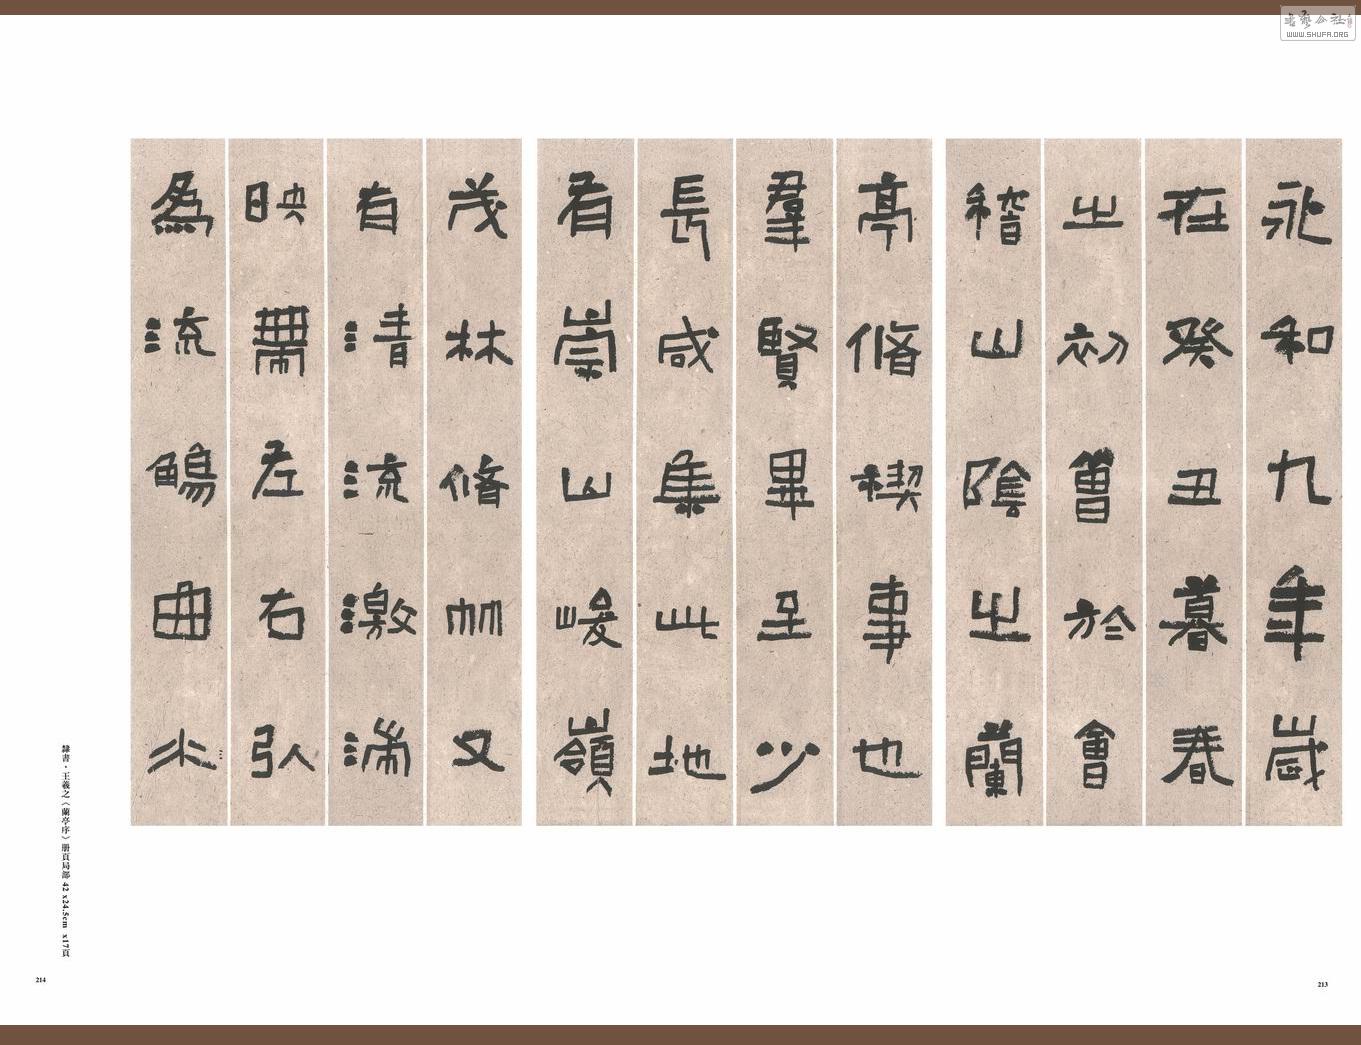 永和九年歲
在癸丑暮春
之初會於會
稽山陰之蘭
亭脩禊事也
羣賢畢至少
長咸集此地
有崇山峻嶺
茂林脩竹又
有清流激湍
映帶左右引
為流觴曲水
隸書·王羲之《蘭亭序》册頁局部 42 x24.5cm x17頁
214
213
WWW.SHUFA.ORG